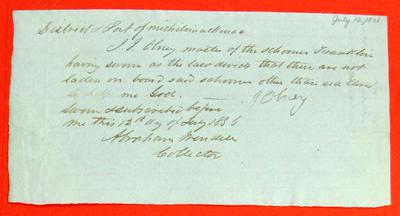 July 12, 1836
District & Port of Michilimackinac
J. Olney master of the schooner Franklin
having sworn as the law directs that there are not
laden on board said schooner other than sea
so help me God. J Olney
sworn & subscribed before
me this 12th day of July 1836
Abraham Wendell
Collector